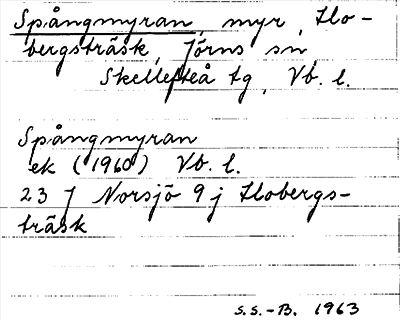 Spångmyran, myr, Flo-
bergsträsk, Jörns sn
Skellefteå tg, Vb. l.
Spångmyran
ek (1960) Vb. l.
23 J Norsjö 9 j Flobergs-
träsk
S.S.-B. 1963